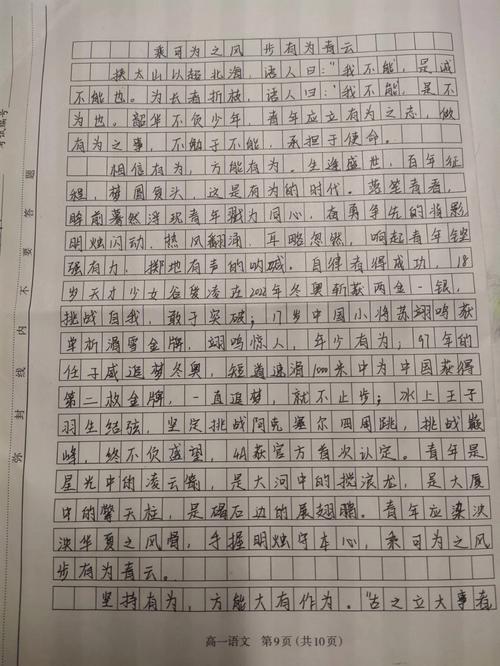 乘可为之风 步有为青云
挟太山以超北海，语人曰："我不能，是诚
不能也。为长者折枝，语人曰："我不能，是不
为也。韶华不负少年，青年应立有为之志，做
有为之事，不勉于不能，承担于使命。
相信有为，方能有为。生逢盛世，百年征
程，梦圆复头，这是有为的时代。蓝笺青看，
眸前蓦然浮现青年戮力同心，奋勇争先的掠影
明烛闪动，热风翻涌，耳畔忽然，响起青年铿
强有力，掷地有声的呐喊。自律者得成功，18
岁天才少女谷俊凌在2022年冬奥斩获两金一银，
挑战自我，敢于突破；17岁中国小将苏翊鸣获
单板滑雪金牌，翊鸣惊人，年少有为；97年的
任子威追梦冬奥，短道速滑1000米中为中国获得
第二枚金牌，一直追梦，就不止步；冰上王子
羽生结弦，坚定挑战阿克塞尔四周跳，挑战巅
峰，终不负盛望，4A获官方首次认定。青年是
星光中的凌云衡，是大河中的搅浪龙，是大厦
中的擎天柱，是碣石边的展翅鹏。青年应染泱
泱华夏之风骨，手握明烛守本心，乘可为之风
步有为青云。
坚持有为，方能大有作为。"古之立大事者
高一语文 第9页(共10页)
弥 封 线 内 不 要 答 题
考试编号